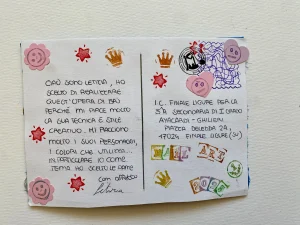 CIAO SONO LETIZIA, HO
SCELTO DI REALIZZARE
QUEST'OPERA DI
PERCHÉ MI PIACE MOLTO
LA SUA TECNICA E STILE
CREATIVO... MI PIACCIONO
MOLTO I SUOI PERSONAGGI,
I COLORI CHE UTILIZZA...
IN PARTICOLARE IO COME
TEMA HO SCELTO LE
CON AFFETTO
Letizia
I.C. FINALE LIGURE PER LA
SECONDARIA DI I GRADO
AYCARDI - GHIGLIERI
PIAZZA DELEDDA 2A,
17024 FINALE LIGURE (SV)
MAIL ART